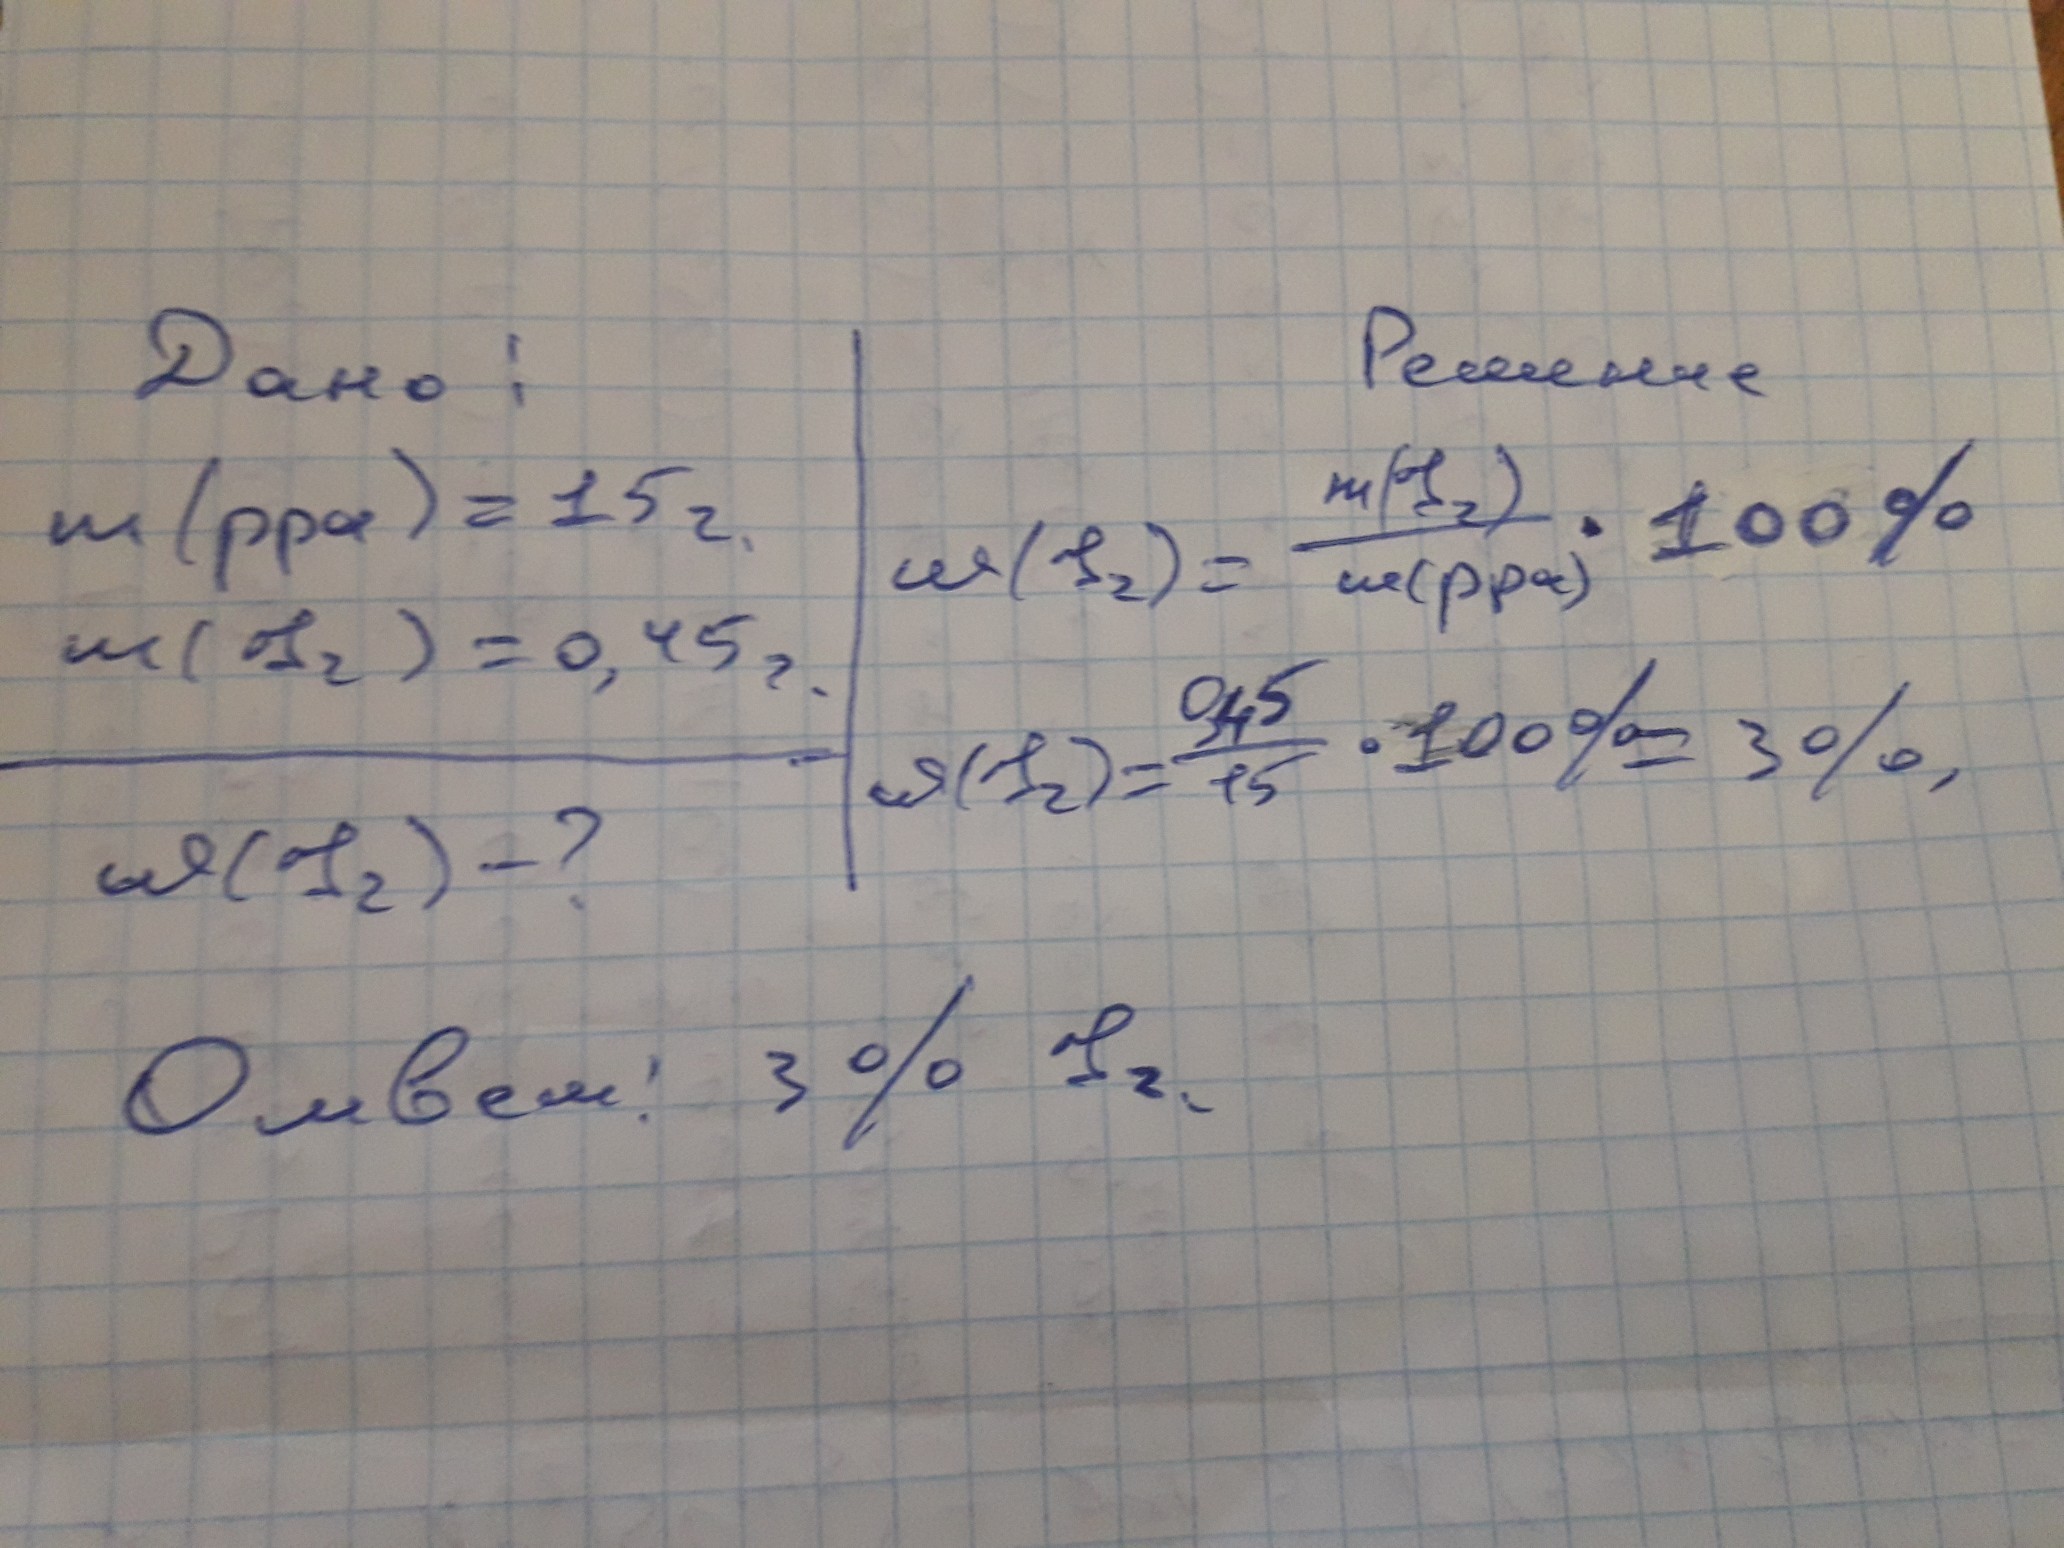 Дано:
m(рра) = 15 г.
m(I₂) = 0,45 г.
ω(I₂) - ?
Решение
ω(I₂) = m(I₂) / m(рра) · 100%
ω(I₂) = 0,45 / 15 · 100% = 3%,
Ответ: 3% I₂.